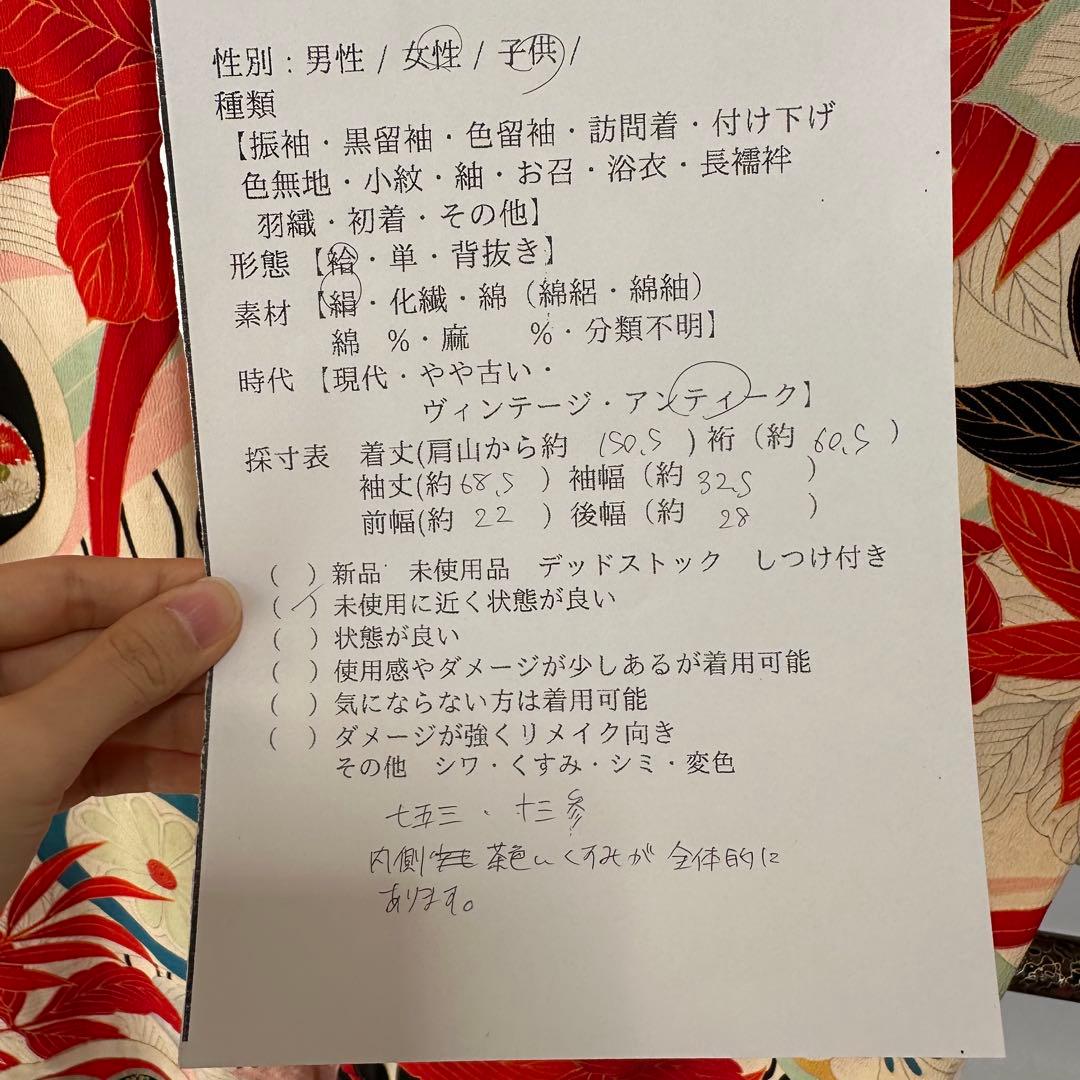 性別：男性 / 女性 / 子供 /
種類
【振袖・黒留袖・色留袖・訪問着・付け下げ
色無地・小紋・紬・お召・浴衣・長襦袢
羽織・初着・その他】
形態【袷・単・背抜き】
素材【絹・化繊・綿（綿絽・綿紬）
綿　%・麻　　%・分類不明】
時代【現代・やや古い・
ヴィンテージ・アンティーク】
採寸表　着丈(肩山から約 150.5 ) 裄（約 60.5 ）
袖丈(約 68.5 ）袖幅（約 32.5 ）
前幅(約 22 ）後幅（約 28 ）
(　) 新品　未使用品　デッドストック　しつけ付き
(／) 未使用に近く状態が良い
(　) 状態が良い
(　) 使用感やダメージが少しあるが着用可能
(　) 気にならない方は着用可能
(　) ダメージが強くリメイク向き
その他　シワ・くすみ・シミ・変色
七五三・十三参
内側 茶色いくすみが 全体的に
あります。